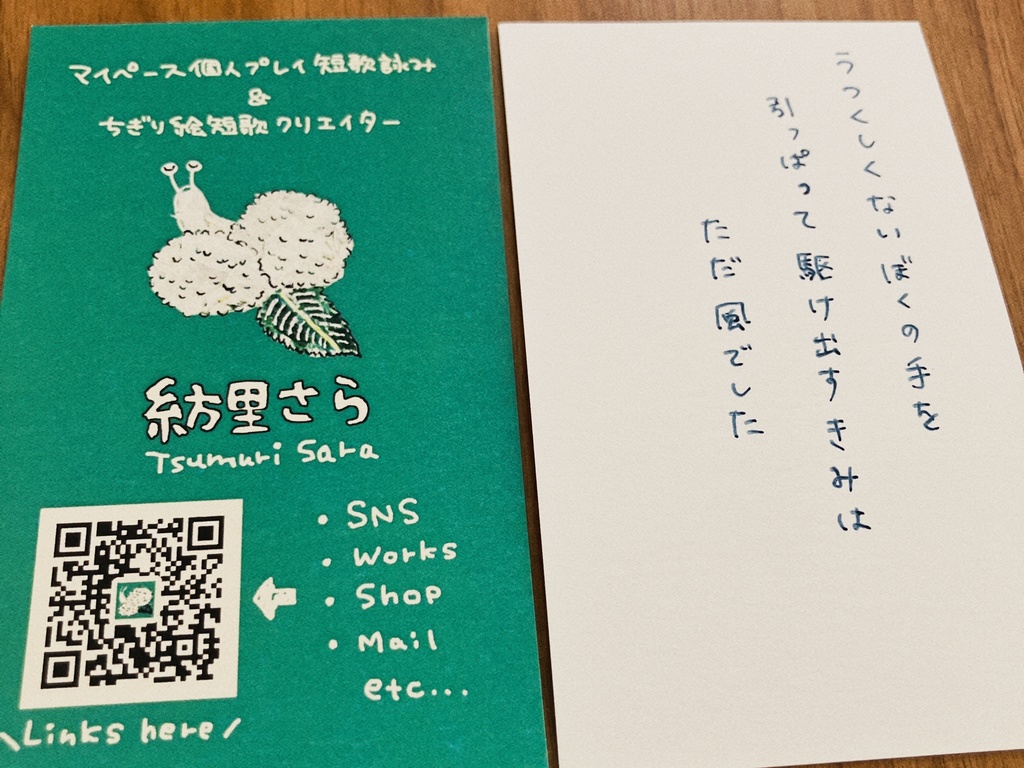 マイペース個人プレイ短歌詠み
&
ちぎり絵短歌クリエイター
紡里さら
Tsumuri Sara
・SNS
・Works
・Shop
・Mail
etc...
\Links here/
うつくしくないぼくの手を
引っぱって駆け出すきみは
ただ風でした